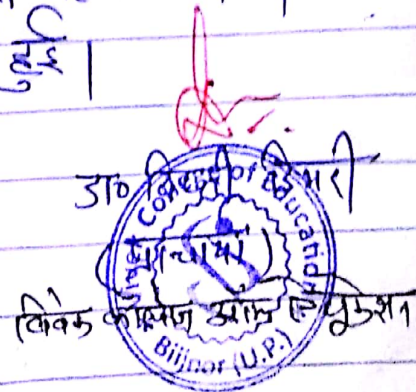 हुई।
डा०
(प्राचार्या)
विवेक कॉलेज ऑफ एजूकेशन
Vivek College of Education
Bijnor (U.P.)